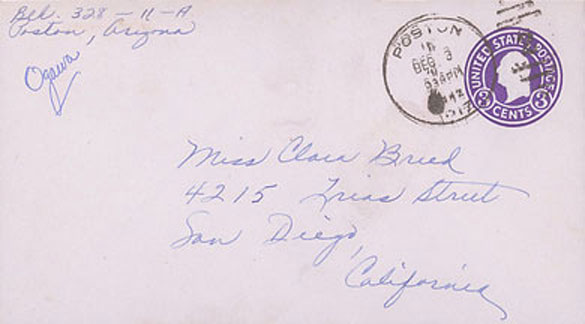 Blk. 328-11-A
Poston, Arizona
Ogawa
POSTON
DEC 3
PM
ARIZ
UNITED STATES POSTAGE
3 CENTS 3
Miss Clara Breed
4215 Trias Street
San Diego,
California